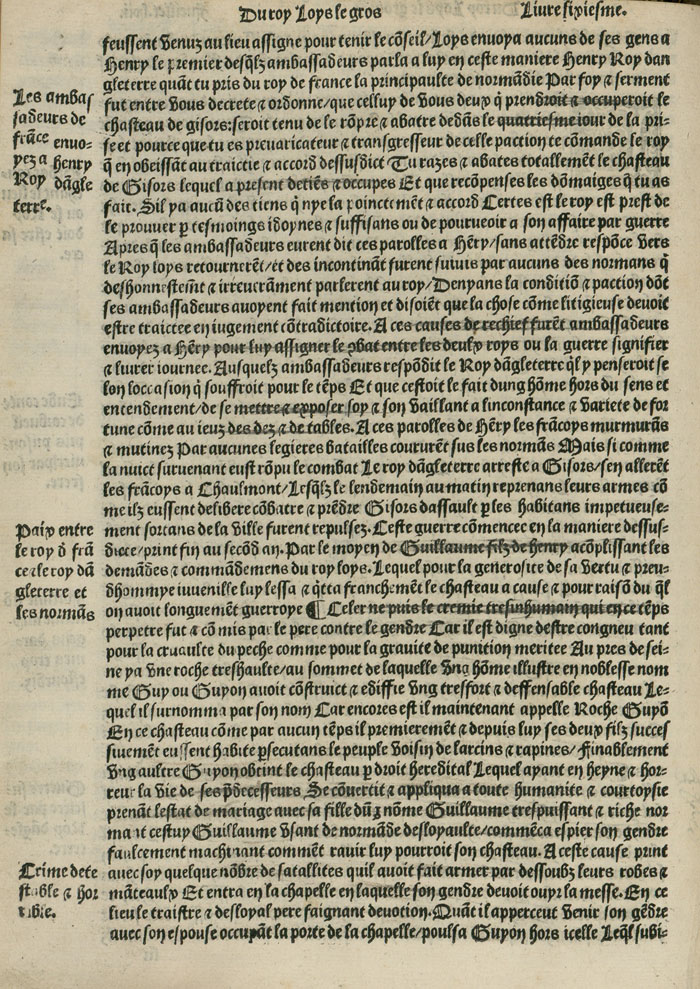 Du roy Loys le gros
Livre sixiesme.
feussent Venuz au lieu assigne pour tenir le cõseil/Loys envoya aucuns de ses gens a
Henry le premier desq̃lz ambassadeurs parla a luy en ceste maniere Henry Roy dan
gleterre quãt tu pris du roy de france la principaulte de normãdie Par foy ⁊ serment
fut entre Vous decrete ⁊ ordonne/que celluy de Vous deux q̃ prendroit ⁊ occuperoit le
chasteau de gisors:seroit tenu de le rõpre ⁊ abatre dedãs le quatriesme iour de la pri-
se et pource que tu es prevaricateur ⁊ transgresseur de celle paction te cõmande le roy
q̃ en obeissãt au traictie ⁊ accord dessusdict Tu razes ⁊ abates totallemẽt le chasteau
de Gisors lequel a present detiẽs ⁊ occupes Et que recõpenses les dõmaiges q̃ tu as
fait. Sil ya aucũ des tiens q̃ nye la poinctemẽt ⁊ accord Certes est le roy est prest de
le prouver p tesmoings idoynes ⁊ suffisans ou de pourveoir a son affaire par guerre
Apres q̃ les ambassadeurs eurent dit ces parolles a Hẽry/sans attẽdre respõce Vers
le Roy loys retournerẽt/et des incontinãt furent suiuis par aucuns des normans q̃
deshonnestemẽt ⁊ irreveramẽt parlerent au roy/Denyans la conditiõ ⁊ paction dõt
ses ambassadeurs avoyent fait mention et disoiẽt que la chose cõme litigieuse devoit
estre traictee en iugement cõtradictoire. A ces causes de rechief furẽt ambassadeurs
envoyez a Hẽry pour luy assigner le ꝯbat entre les deulx roys ou la guerre signifier
⁊ livrer iournee. Ausquelz ambassadeurs respõdit le Roy dãgleterre q̃l y penseroit se
lon loccasion q̃ souffroit pour le tẽps Et que cestoit le fait dung hõme hors du sens et
entendement/de se mettre ⁊ exposer soy ⁊ son Vaillant a linconstance ⁊ Variete de for
tune cõme au ieuz des dez ⁊ de tables. A ces parolles de Hẽry les frãcoys murmurãs
⁊ mutinez Par aucunes legieres batailles coururẽt sus les normãs Mais si comme
la nuict survenant eust rõpu le combat Le roy dãgleterre arreste a Gisors/sen allerẽt
les frãcoys a Chaulmont/Lesq̃lz le lendemain au matin reprenans leurs armes cõ
me ilz eussent delibere cõbatre ⁊ prẽdre Gisors dassault p les habitans impetueuse-
ment sortans de la Ville furent repulsez. Ceste guerre cõmencee en la maniere dessus-
dicte/print fin au secõd an. Par le moyen de Guillaume filz de henry acõplissant les
demãdes ⁊ commãdemens du roy loys. Lequel pour la generosite de sa Vertu ⁊ preu-
dhommye iuvenille luy lessa ⁊ q̃tta franchemẽt le chasteau a cause ⁊ pour raisõ du q̃l
on avoit longuemẽt guerroye ¶ Celer ne puis le cremie tresinhumain qui en ce tẽps
perpetre fut ⁊ cõmis par le pere contre le gendre Car il est digne destre congneu tant
pour la cruaulte du peche comme pour la gravite de punition meritee Au pres de sei-
ne ya Vne roche treshaulte/au sommet de laquelle Vng hõme illustre en noblesse nom
me Guy ou Guyon avoit cõstruict ⁊ ediffie Vng tresfort ⁊ deffensable chasteau Le-
quel il surnomma par son nom Car encores est il maintenant appelle Roche Guyõ
En ce chasteau cõme par aucun tẽps il premieremẽt ⁊ depuis luy ses deux filz succes
sivemẽt eussent habite ꝑsecutans le peuple Voisin de larcins ⁊ rapines/Finablement
Vng aultre Guyon obtint le chasteau p droit heredital Lequel ayant en heyne ⁊ hor-
reur la Vie de ses p̃decesseurs. Se cõvertit ⁊ appliqua a toute humanite ⁊ courtoysie
prenãt lestat de mariage avec sa fille dũg nõme Guillaume trespuissant ⁊ riche nor
mant cestuy Guillaume Vsant de normãde desloyaulte/commẽca espier son gendre
faulcement machinant commẽt ravir luy pourroit son chasteau. A ceste cause print
avec soy quelque nõbre de satallites quil avoit fait armer par dessoubz leurs robes ⁊
mãteaulx Et entra en la chapelle en laquelle son gendre devoit ouyr la messe. En ce
lieu le traistre ⁊ desloyal pere faignant devotion. Quãt il apperceut Venir son gẽdre
avec son espouse occupãt la porte de la chapelle/poulsa Guyon hors icelle Leq̃l subi-
Les ambas
sadeurs de
frãce envo-
yez a henry
Roy dãgle
terre.
Paix entre
le roy d̃ frã
ce ⁊ le roy dã
gleterre et
les normãs
Crime dete
stable ⁊ hor
rible.